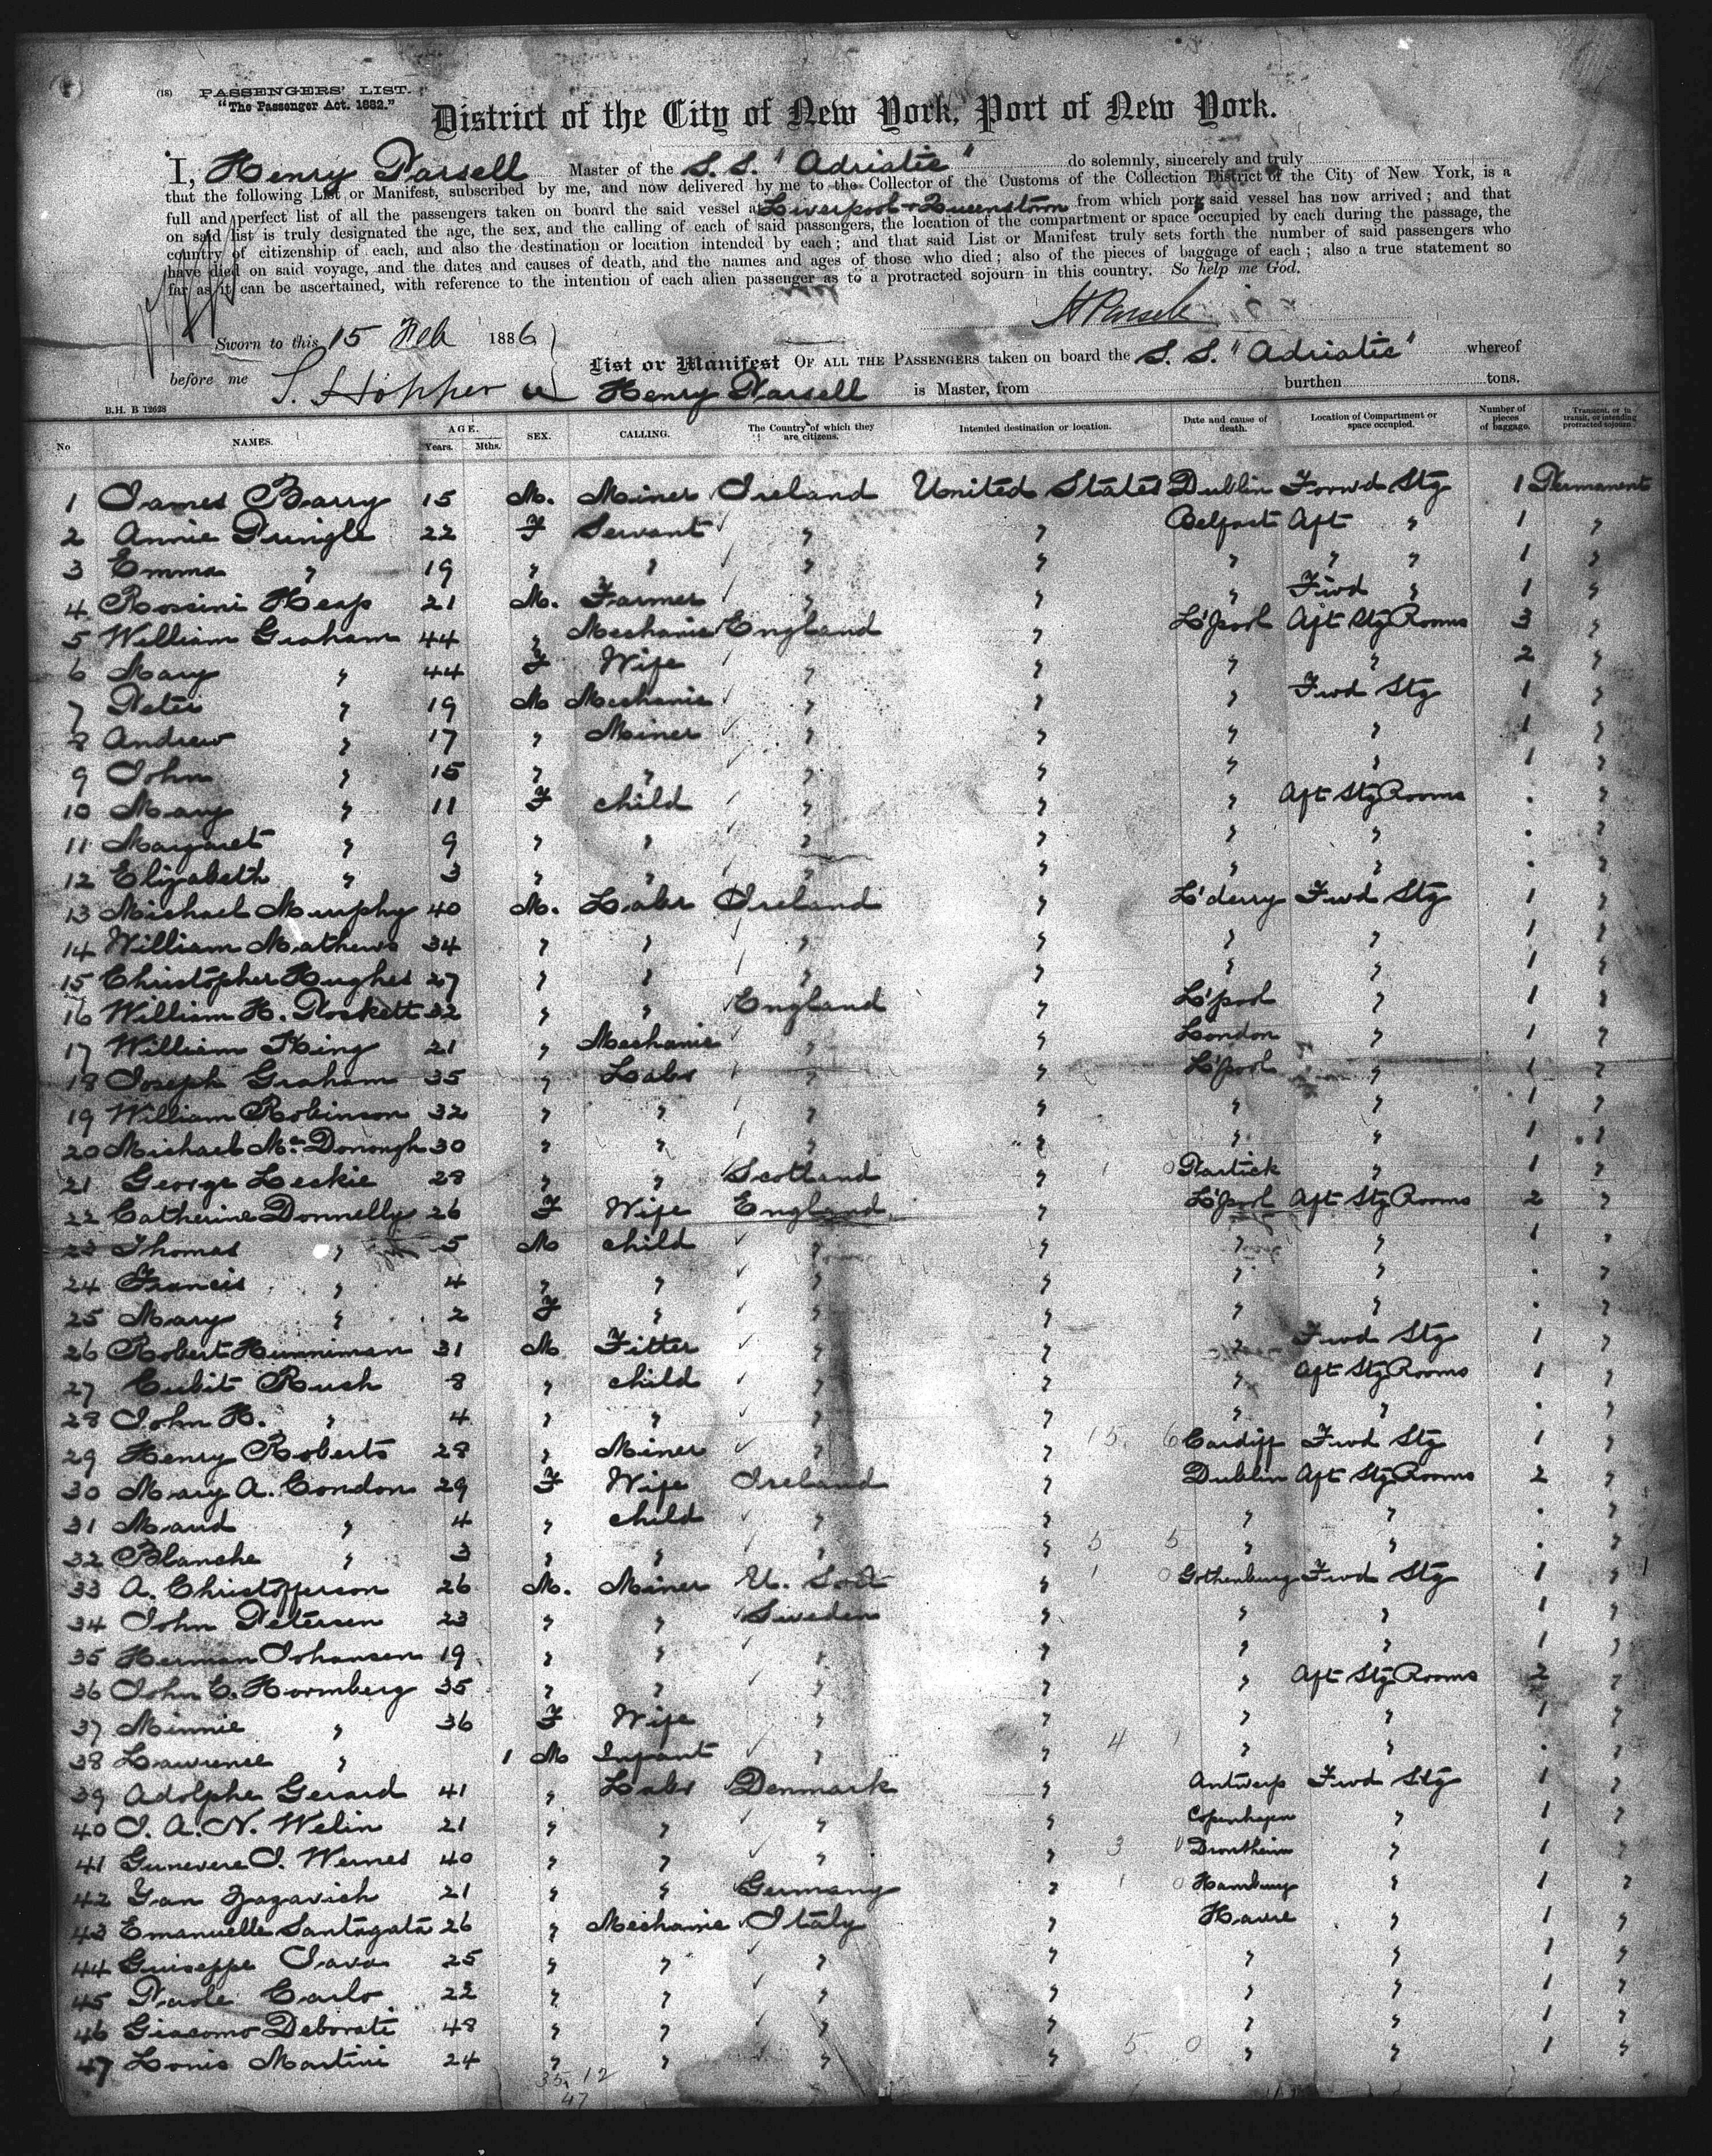 (18) PASSENGERS' LIST.
"The Passenger Act. 1882."
District of the City of New York, Port of New York.
I, Henry Parsell Master of the S.S. "Adriatic" do solemnly, sincerely and truly
that the following List or Manifest, subscribed by me, and now delivered by me to the Collector of the Customs of the Collection District of the City of New York, is a
full and perfect list of all the passengers taken on board the said vessel at Liverpool & Queenstown from which port said vessel has now arrived; and that
on said list is truly designated the age, the sex, and the calling of each of said passengers, the location of the compartment or space occupied by each during the passage, the
country of citizenship of each, and also the destination or location intended by each; and that said List or Manifest truly sets forth the number of said passengers who
have died on said voyage, and the dates and causes of death, and the names and ages of those who died; also of the pieces of baggage of each; also a true statement so
far as it can be ascertained, with reference to the intention of each alien passenger as to a protracted sojourn in this country. So help me God.
H Parsell
Sworn to this 15 Feb 1886
before me S. Hopper
List or Manifest OF ALL THE PASSENGERS taken on board the S.S. "Adriatic" whereof
Henry Parsell is Master, from burthen tons.
B.H. B 12628
No NAMES. AGE. Years. Mths. SEX. CALLING. The Country of which they are citizens. Intended destination or location. Date and cause of death. Location of Compartment or space occupied. Number of pieces of baggage. Transient, or in transit, or intending protracted sojourn.
1 James Barry 15 M. Miner Ireland United States Dublin Forwd Stg 1 Permanent
2 Annie Pringle 22 F Servant " " Belfast Aft " 1 "
3 Emma " 19 " " " " " " " 1 "
4 Rossini Heap 21 M. Farmer " " " Fwd " 1 "
5 William Graham 44 " Mechanic England " L'pool Aft Stg Rooms 3 "
6 Mary " 44 F Wife " " " " 2 "
7 Peter " 19 M Mechanic " " " Fwd Stg 1 "
8 Andrew " 17 " Miner " " " " 1 "
9 John " 15 " " " " " " 1 "
10 Mary " 11 F child " " " Aft Stg Rooms . "
11 Margaret " 9 " " " " " " . "
12 Elizabeth " 3 " " " " " " . "
13 Michael Murphy 40 M. Labr Ireland " L'derry Fwd Stg 1 "
14 William Mathews 34 " " " " " " 1 "
15 Christopher Hughes 27 " " " " " " 1 "
16 William H. Poskett 32 " " England " L'pool " 1 "
17 William King 21 " Mechanic " " London " 1 "
18 Joseph Graham 35 " Labr " " L'pool " 1 "
19 William Robinson 32 " " " " " " 1 "
20 Michael Mc Donough 30 " " " " " " 1 "
21 George Leskie 28 " " Scotland " Partick " 1 "
22 Catherine Donnelly 26 F Wife England " L'pool Aft Stg Rooms 2 "
23 Thomas " 5 M child " " " " 1 "
24 Francis " 4 " " " " " " . "
25 Mary " 2 F " " " " " . "
26 Robert Hunniman 31 M Fitter " " " Fwd Stg 1 "
27 Cubit Rush 8 " child " " " Aft Stg Rooms 1 "
28 John H. " 4 " " " " " " . "
29 Henry Roberts 28 " Miner " " 15. 6 Cardiff Fwd Stg 1 "
30 Mary A. Condon 29 F Wife Ireland " Dublin Aft Stg Rooms 2 "
31 Maud " 4 " child " " " " . "
32 Blanche " 3 " " " " 5 5 " " . "
33 A. Christofferson 26 M. Miner U. S. of A " 1 0 Gothenburg Fwd Stg 1 "
34 John Petersen 23 " " Sweden " " " 1 "
35 Herman Johansen 19 " " " " " " 1 "
36 John E. Hormberg 35 " " " " " Aft Stg Rooms 2 "
37 Minnie " 36 F Wife " " " " 1 "
38 Lawrence " 1 M Infant " " 4 1 " " . "
39 Adolphe Gerard 41 " Labr Denmark " Antwerp Fwd Stg 1 "
40 J. A. N. Welin 21 " " " " Copenhagen " 1 "
41 Gunevere J. Wernes 40 " " " " 3 0 Drontheim " 1 "
42 Yan Zazavich 21 " " Germany " 1 0 Hamburg " 1 "
43 Emanuelle Santagata 26 " Mechanic Italy " Havre " 1 "
44 Guiseppe Java 25 " " " " " " 1 "
45 Paole Carlo 22 " " " " " " 1 "
46 Giacomo Deborati 48 " " " " " " 1 "
47 Louis Martini 24 " " " " 5 0 " " 1 "
35. 12
47